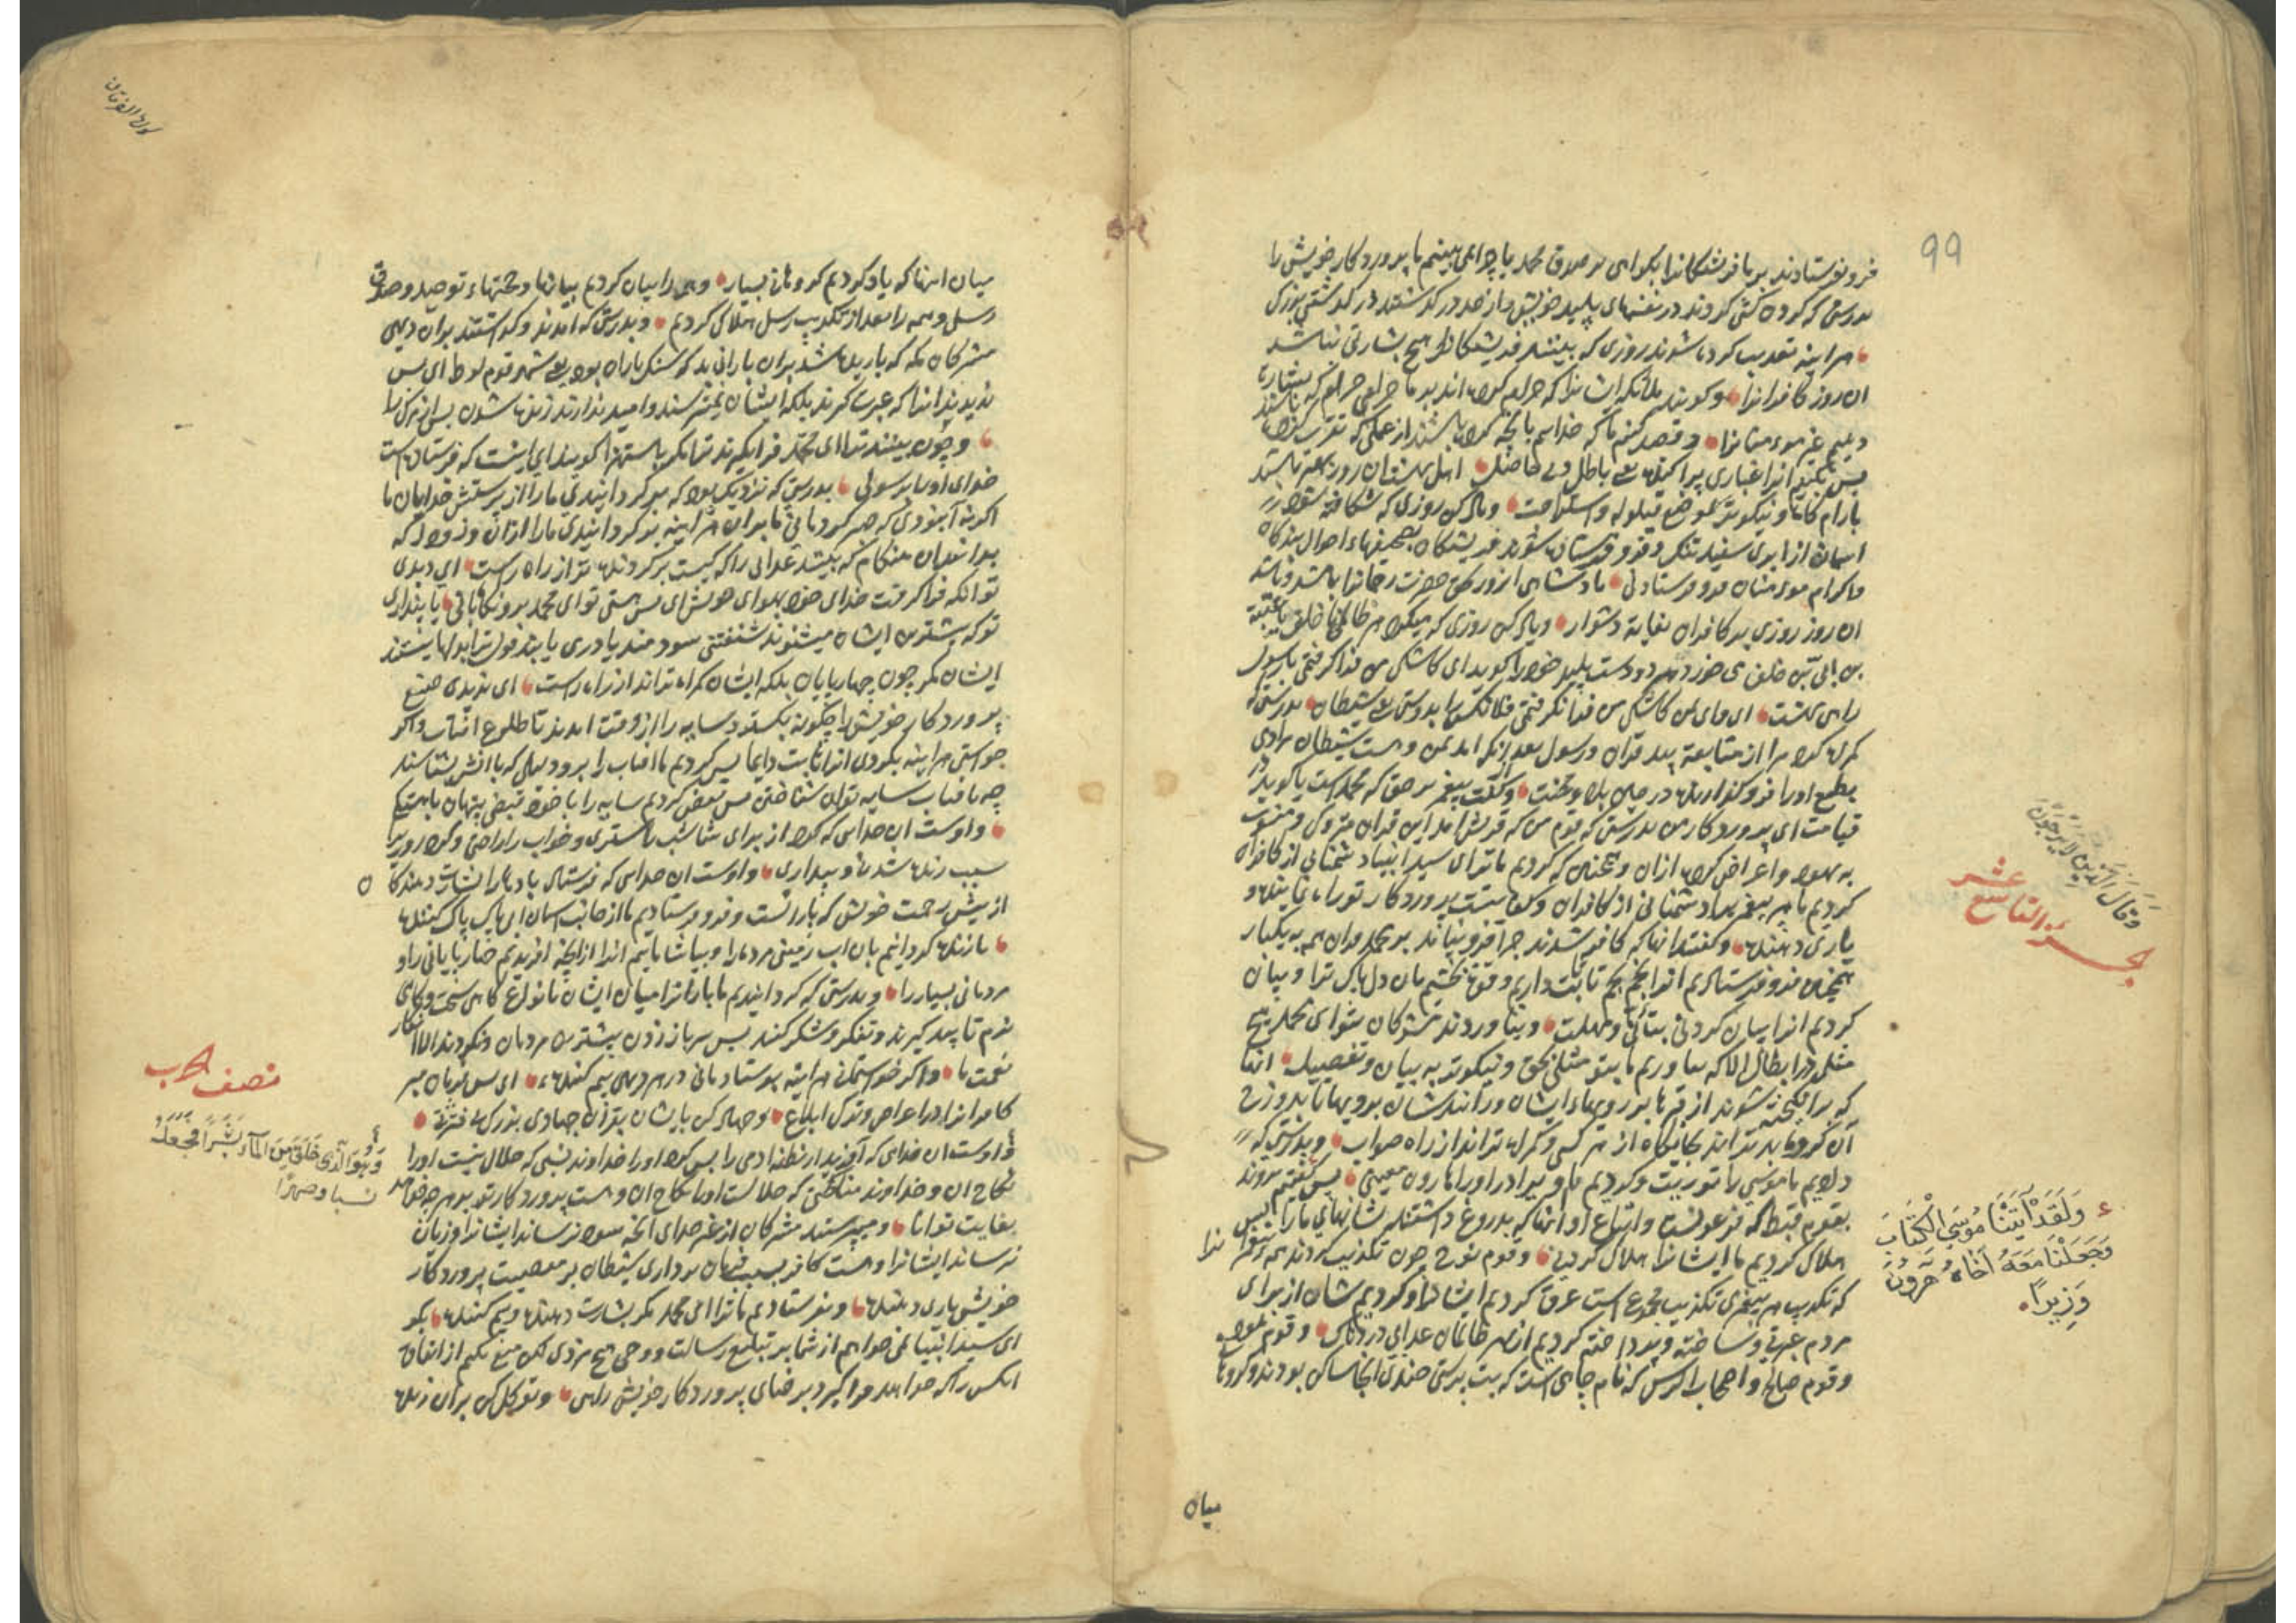 99
فرو نفرستادند بر ما فرشتگانرا بگواهی بر صدق محمد یا چرا نمی بینم ما پروردگار خویش را
بدرستی که گردن کشی کردند در نفسهای پلید خویش و از حد در گذشتند در گذشتنی بزرگ
هراینه تعذیب کرده شوند روزی که ببینند فریشتگانرا هیچ بشارتی نباشد
ان روز کافرانرا و گویند ملائکه ایشانرا که حرام کرده اند بر ما
دهیم غیر مؤمنانرا و قصد کنیم ما که خداییم بانچه کرده باشند از عملی که
پس بکنیم انرا غباری پراکنده باطل بی حاصل اهل بهشت ان روز بهتر باشند
بارام گاه و نیکوتر بموضع قیلوله و استراحت و یاد کن روزی که شکافته شود
اسمان از ابری سفید تنک و فرو فرستاده شوند فریشتگان بصحیفهاء اعمال بندگان
و اکرام مؤمنان فرو فرستادنی پادشاهی انروز بحق حضرت رحمانرا باشد و باشد
ان روز روزی بر کافران بغایة دشوار و یاد کن روزی که میگزد هر ظالمی
هر دو دست پلید خود را گوید ای کاشکی من فرا گرفتمی با رسول
راهی بهشت ای وای من کاشکی من فرا نگرفتمی فلانکس را بدوستی شیطان بدرستی که
گمراه کرد مرا از متابعة قران و رسول بعد از انکه امد بمن و هست شیطان مرادمی
مطیع اورا فرو گذارنده در میان بلا و محنت و گفت پیغمبر بر حق که محمد است یا گوید در
قیامت ای پروردگار من بدرستی که قوم من که قریش اند این قران متروک
و اعراض کرده ازان و همچنین که کردیم ما ترا ای سید انبیا دشمنانی از کافران
کردیم ما هر پیغمبر را دشمنانی از کافران و کفایتست پروردگار تو راه نماینده و
یاری دهنده و گفتند انها که کافر شدند چرا فرو نیامد بر محمد قران همه به یکبار
همچنین فرو فرستادیم انرا تا ثابت داریم و قوت بخشیم بان دل پاک ترا و بیان
کردیم انرا بیان کردنی بتأنی و مهلت و نیاوردند مشرکان بتو ای محمد هیچ
مثلی در ابطال الا که بیاوریم ما بتو مثلی بحق و نیکوتر به بیان و تفصیل انها
که برانگیخته شوند از قبرها بر رویهاء ایشان و رانندشان برویها تا بدوزخ
آن گروه بدتراند بجایگاه از هر کسی و گمراه تراند از راه صواب و بدرستی که
دادیم ما موسی را توریت و کردیم با او برادر اورا هارون معین پس گفتیم بروند
بقوم قبط که فرعونست و اتباع او انها که بدروغ داشتند نشانهای ما را پس
هلاک کردیم ما ایشانرا هلاک کردنی و قوم نوح چون تکذیب کردند همه پیغمبرانرا
که تکذیب هر پیغمبری تکذیب مجموع است غرق کردیم ایشانرا و کردیم شان از برای
مردم عبرتی و ساخته و پرداخته کردیم از بهر ظالمان عذابی دردناک و قوم ثمود
و قوم صالح و اصحاب الرس که نام چاهی است که بت پرستی چندی انجا ساکن بودند و گروه
وَقَالَ الَّذِينَ لَا يَرْجُونَ
الجزء التاسع عشر
وَلَقَدْ آتَيْنَا مُوسَى الْكِتَابَ
وَجَعَلْنَا مَعَهُ أَخَاهُ هَرُونَ
وَزِيرًا
میان
سورة الفرقان
میان انها که یاد کردیم گروهانی بسیار و همه را بیان کردیم بیانها و حجتهاء توحید و صدق
رسل و همه را بعد از تکذیب رسل هلاک کردیم و بدرستی که امدند و گذشتند بران دیهی
مشرکان مکه که بارید شد بران بارانی بد که سنگ باران بود یعنی شهر قوم لوط ای پس
ندیدند انرا که عبرت گیرند بلکه ایشان نمی ترسند و امید ندارند زنده شدن پس از مرگ را
و چون بینند ترا ای محمد فرا نگیرند ترا مگر باستهزا گویند ای اینست که فرستاده است
خدای اورا برسولی بدرستی که نزدیک بود که برگردانیدی مارا از پرستش خدایان ما
اگر نه آنبودی که صبر کردمانی ما بران هراینه برگردانیدی مارا ازان و زود بود که
بدانند ان هنگام که ببینند عذابی را که کیست برگردنده تر از راه راست ای دیدی
تو انکه فرا گرفت خدای خود هوای خویش ای پس هستی تو ای محمد برو نگاهبانی یا پنداری
تو که بیشترین ایشان میشنوند شنفتنی سودمند یا در می یابند قول ترا بدلها نیستند
ایشان مگر چون چهارپایان بلکه ایشان گمراه تراند از راه راست ای ندیدی صنع
پروردگار خویش را چگونه بگسترد سایه را از وقت امدن تا طلوع افتاب و اگر
خواستی هراینه بکردی انرا ثابت دایما پس کردیم ما افتاب را برو دلیلی که با انش بشناسند
چه بافتاب سایه توان شناختن پس قبض کردیم سایه را با خود قبضی پنهان باهستگی
و اوست ان خدایی که کرد از برای شما شب را ستری و خواب را راحتی و کرد روز را
سبب زنده شدن و بیداری و اوست ان خدایی که فرستاد بادها را بشارت دهندگان
از پیش رحمت خویش که بارانست و فرو فرستادیم ما از جانب اسمان ابی پاک پاک کننده
تا زنده گردانیم بان اب زمینی مرده را و بیاشامانیم انرا از انچه افریدیم چهارپایانی را و
مردمانی بسیار را و بدرستی که گردانیدیم ما بارانرا میان ایشان بانواع گاهی سخت و گاهی
نرم تا پند گیرند و تفکر و شکر کنند پس سر باز زدن بیشترین مردمان و نکردند الا انکار
نعمت ما و اگر خواستمانی هراینه بفرستادمانی در هر دیهی بیم کننده ای پس فرمان مبر
کافرانرا در اعراض و ترک ابلاغ و جهاد کن با ایشان بقرآن جهادی بزرگ بی فترتی
و اوست ان خدای که آفرید از نطفه ادمی را پس کرد اورا خداوند نسبی که حلال نیست اورا
نکاح ان و خداوند مناکحتی که حلالست اورا نکاح ان و هست پروردگار تو بر هر چه خواهد
بغایت توانا و میپرستند مشرکان از غیر خدای انچه سود نرساند ایشانرا و زیان
نرساند ایشانرا و هست کافر بسبب فرمان برداری شیطان بر معصیت پروردگار
خویش یاری دهنده و نفرستادیم ما ترا ای محمد مگر بشارت دهنده و بیم کننده بگو
ای سید انبیا نمی خواهم از شما بر تبلیغ رسالت و وحی هیچ مزدی لیکن منع نکنم از انفاق
انکس را که خواهد فرا گیرد بر رضای پروردگار خویش راهی و توکل کن بران زنده
نصف الحزب
وَهُوَ الَّذِي خَلَقَ مِنَ الْمَاءِ بَشَرًا فَجَعَلَهُ
نسبا وصهرًا